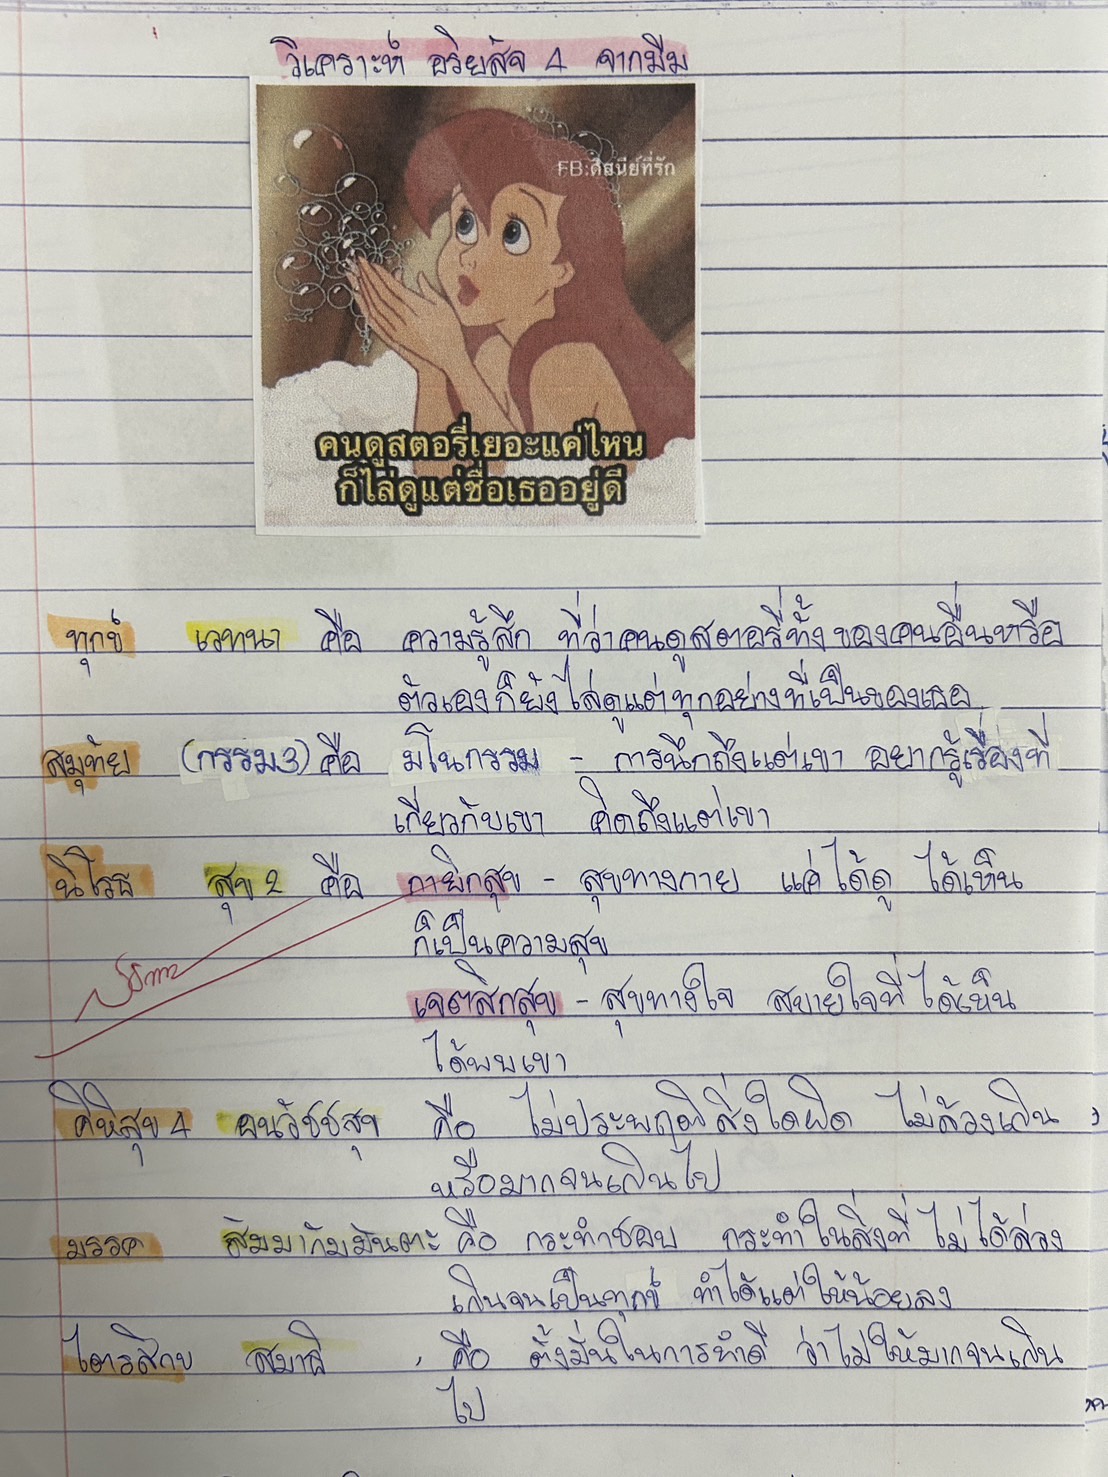 วิเคราะห์ อริยสัจ 4 จากมีม
FB:ดิสนีย์ที่รัก
คนดูสตอรี่เยอะแค่ไหน
ก็ไล่ดูแต่ชื่อเธออยู่ดี
ทุกข์ เวทนา คือ ความรู้สึก ที่ว่าคนดูสตอรี่ทั้งของคนอื่นหรือ
ตัวเองก็ยังไล่ดูแต่ทุกอย่างที่เป็นของเธอ
สมุทัย (กรรม3) คือ มโนกรรม - การนึกถึงแต่เขา อยากรู้เรื่องที่
เกี่ยวกับเขา คิดถึงแต่เขา
นิโรธ สุข 2 คือ กายิกสุข - สุขทางกาย แค่ได้ดู ได้เห็น
ก็เป็นความสุข
เจตสิกสุข - สุขทางใจ สบายใจที่ได้เห็น
ได้พบเขา
คิหิสุข 4 อนวัชชสุข คือ ไม่ประพฤติสิ่งใดผิด ไม่ล้วงเกิน
หรือมากจนเกินไป
มรรค สัมมากัมมันตะ คือ กระทำชอบ กระทำในสิ่งที่ไม่ได้ล่วง
เกินจนเป็นทุกข์ ทำได้แต่ให้น้อยลง
ไตรสิกข สมาธิ คือ ตั้งมั่นในการทำดี ว่าไม่ให้มากจนเกิน
ไป